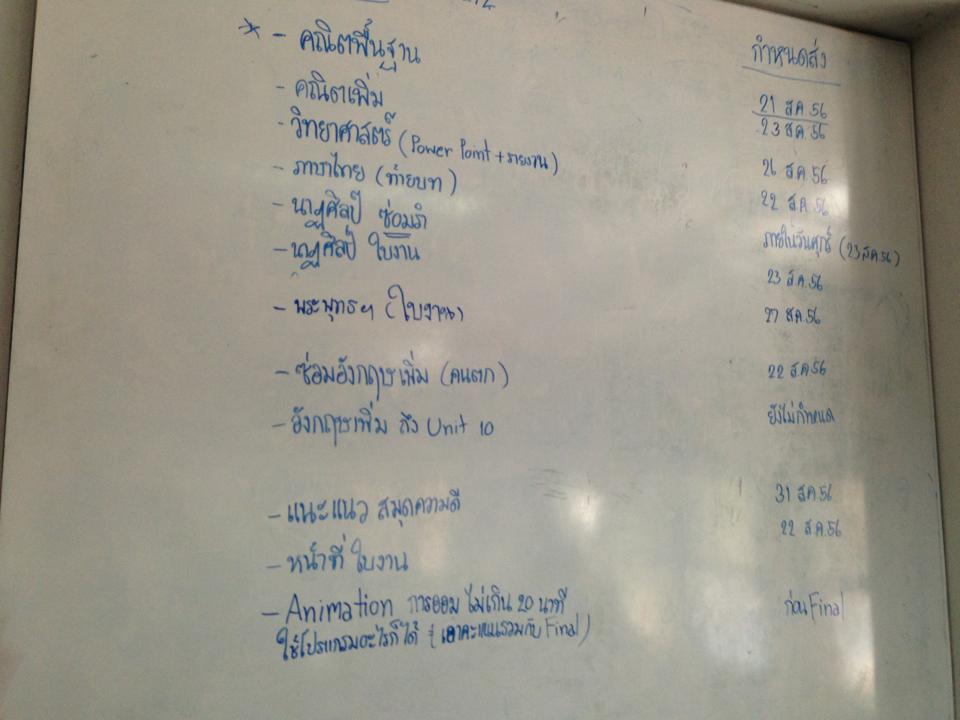 * - คณิตพื้นฐาน
กำหนดส่ง
- คณิตเพิ่ม
21 ส.ค. 56
- วิทยาศาสตร์ (Power Point + รายงาน)
23 ส.ค. 56
- ภาษาไทย (ท้ายบท)
26 ส.ค. 56
- นาฏศิลป์ ซ่อมรำ
22 ส.ค. 56
- นาฏศิลป์ ใบงาน
ภายในวันศุกร์ (23 ส.ค. 56)
23 ส.ค. 56
- พระพุทธฯ (ใบงาน)
27 ส.ค. 56
- ซ่อมอังกฤษเพิ่ม (คนตก)
22 ส.ค. 56
- อังกฤษเพิ่ม ถึง Unit 10
ยังไม่กำหนด
- แนะแนว สมุดความดี
31 ส.ค. 56
22 ส.ค. 56
- หน้าที่ ใบงาน
- Animation การออม ไม่เกิน 20 นาที
ก่อน Final
ใช้โปรแกรมอะไรก็ได้ (เอาคะแนนรวมกับ Final)